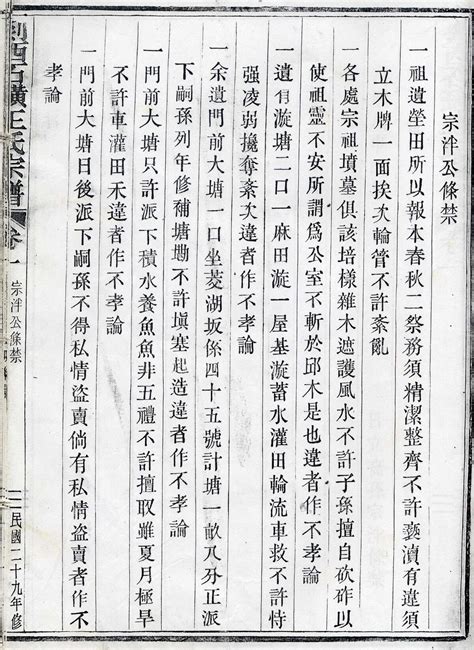 宗泮公條禁
一祖遺塋田所以報本春秋二祭務須精潔整齊不許褻瀆有違須
立木牌一面挨次輪管不許紊亂
一各處宗祖墳墓俱該培樣雜木遮護風水不許子孫擅自砍斫以
使祖靈不安所謂爲公室不斬於邱木是也違者作不孝論
一遺有漩塘二口一麻田漩一屋基漩蓄水灌田輪流車救不許恃
强凌弱攙奪紊次違者作不孝論
一余遺門前大塘一口坐菱湖坂係四十五號計塘一畝八分正派
下嗣孫列年修補塘勘不許塡塞起造違者作不孝論
一門前大塘只許派下積水養魚魚非五禮不許擅取雖夏月極旱
不許車灌田禾違者作不孝論
一門前大塘日後派下嗣孫不得私情盜賣倘有私情盜賣者作不
孝論
西石磺王氏宗譜
卷一
宗泮公條禁
民國二十九年修